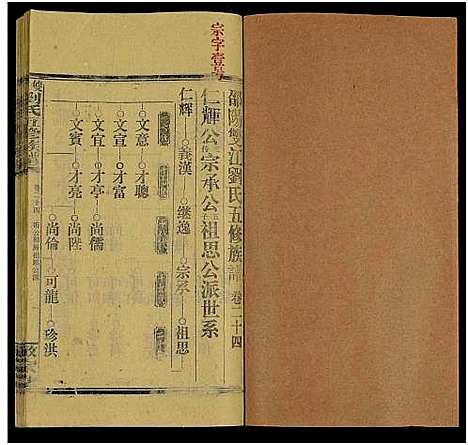 宗字壹号
邵陽雙江劉氏五修族譜 卷二十四
仁輝公宗承公祖思公派世系
仁輝 義漢 继逸 宗承 祖思
文意 才聰
文宜 才富
文宣 才亨 尚儒
文賓 才亮 尚陞
尚倫 可龍 珍洪
劉氏五修族譜 卷二十四